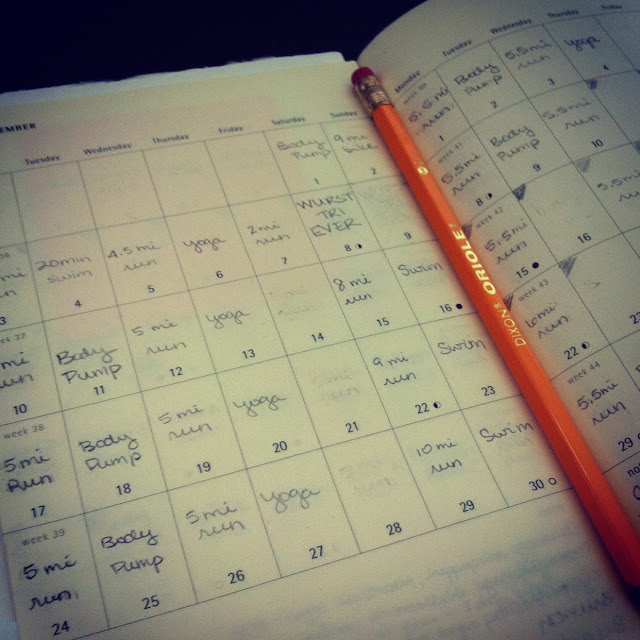 EMBER
Tuesday Wednesday Thursday Friday Saturday Sunday
Body
Pump
1
9 mi
bike
2
mi
run
3
20 min
swim
4
4.5 mi
run
5
yoga
6
2 mi
run
7
WURST
TRI
EVER
8
9
week 37
mi
run
10
Body
Pump
11
5 mi
run
12
yoga
13
14
8 mi
run
15
Swim
16
week 38
5 mi
Run
17
Body
Pump
18
5 mi
run
19
yoga
20
21
9 mi
run
22
Swim
23
week 39
5 mi
run
24
Body
Pump
25
5 mi
run
26
yoga
27
28
10 mi
run
29
Swim
30
DIXON® ORIOLE
Monday Tuesday Wednesday Thursday Friday
5.5 mi
run
1
Body
Pump
2
5.5 mi
run
3
yoga
4
week 41
5.5 mi
run
8
Body
Pump
9
5.5 mi
run
10
week 42
5.5 mi
run
15
16
5.5 mi
week 43
6 mi
run
22
week 44
5.5 mi
run
29